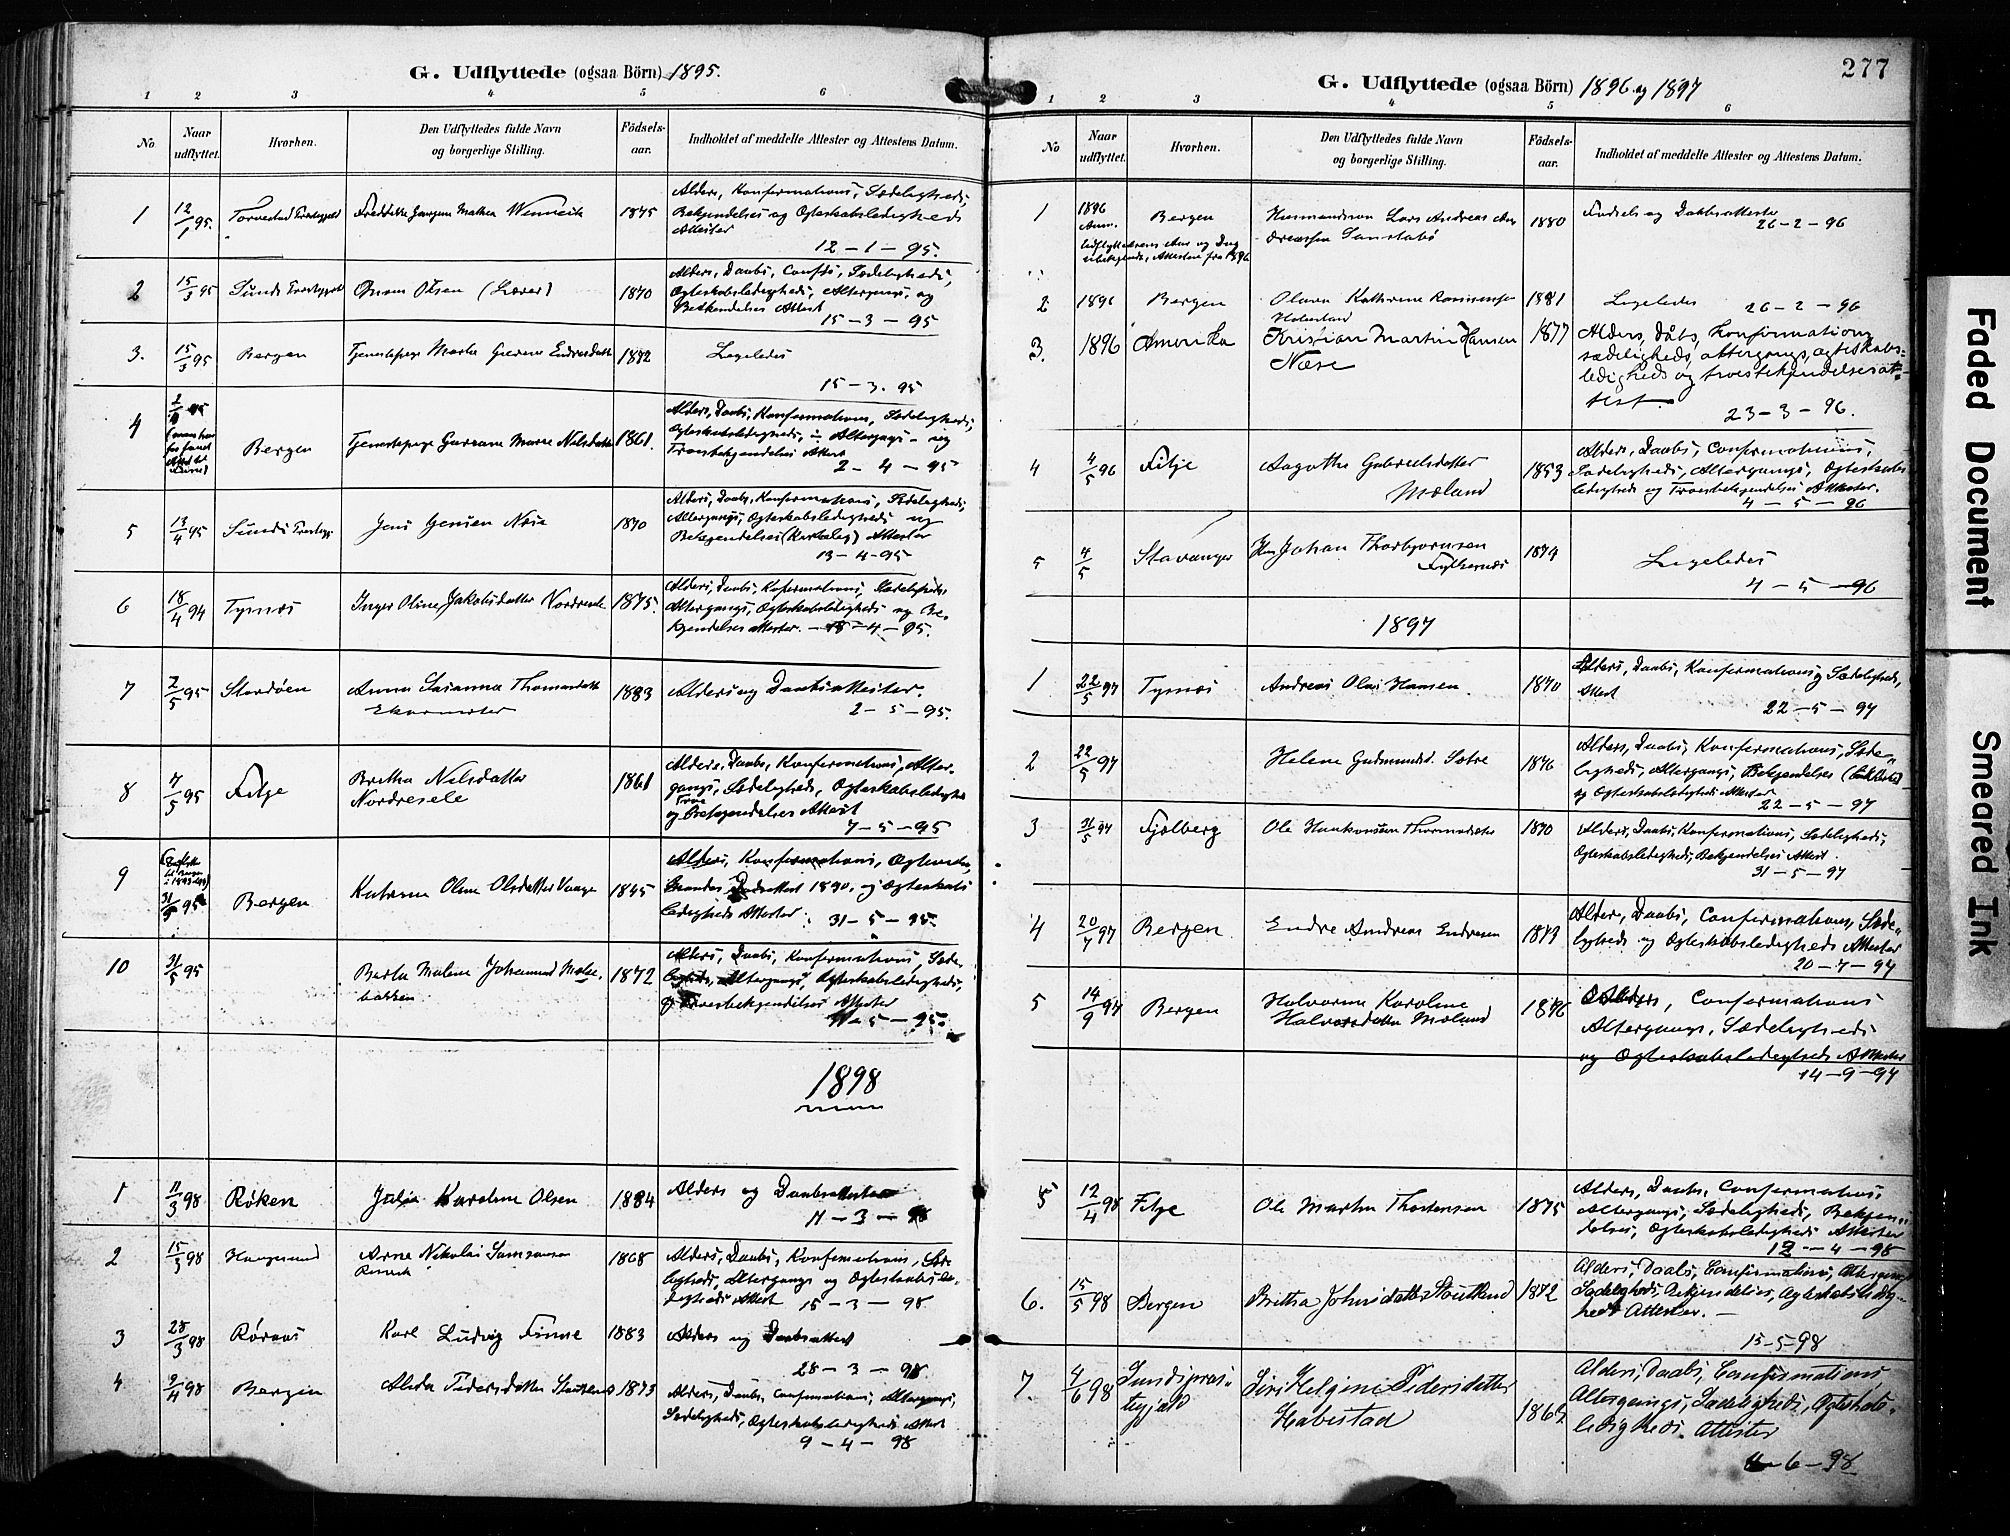 G. Udflyttede (ogsaa Börn) 1895.
1 2 3 4 5 6
No
Naar udflyttet.
Hvorhen.
Den Udflyttedes fulde Navn og borgerlige Stilling.
Födsels-aar.
Indholdet af meddelte Attester og Attestens Datum.
1 12/1 95. Torvestad Præstegjeld 1875 Alders, Konfirmations, Sædeligheds,
Bekjendelses og Ægteskabsledigheds
Attester
12-1-95.
2 15/3 95 Sunds Præstegjeld Olsen (Lærer) 1870 Alders, Daabs, Confs, Sædeligheds,
Ægteskabsledigheds, Altergangs, og
Bekjendelses Attest
15-3-95
3. 15/3 95 Bergen Tjenestepige Marta Endresdatter 1872 Ligeledes
15-3-95
4 Bergen Tjenestepige Marie Nilsdatter 1861. Alders, Daabs, Konfirmations, Sædeligheds,
Ægteskabsledigheds, Altergangs- og
Troesbekjendelses Attest
2-4-95
5 13/4 95 Sunds Præstegj. Jens Jensen Næse 1870 Alders, Daabs, Konfirmations, Sædeligheds,
Altergangs, Ægteskabsledigheds og
Bekjendelses Attester
13-4-95
6 18/4 94 Tysnæs Inger Oline Jakobsdatter Nordresele 1875. Alders, Daabs, Kofirmations, Sædeligheds
Altergangs, Ægteskabsledigheds og Be-
kjendelses Attester. 18-4-95.
7 2/5 95 Stordöen Anna Susanna Thomasdatter 1883 Alders og Daabsattester.
2-5-95.
8 7/5 95 Fitje Britha Nilsdatter
Nordresele 1861 Alders, Daabs, Konfirmations, Alter-
gangs, Sædeligheds, Ægteskabsledigheds
og Troesbekjendelses Attest
7-5-95
9 31/5 95 Bergen Katrine Oline Olsdatter Vaage 1845 Alders, Konfirmations,
1890, og Ægteskabs
ledigheds Attester. 31-5-95.
10 31/5 95 Berta Malene Johannesd.
bakken 1872 Alders, Daabs, Konfirmations, Sæde-
ligheds, Altergangs, Ægteskabsledigheds,
og Troesbekjendelses Attester
5-95.
1898
1 11/3 98 Røken Julia Karoline Olsen 1884 Alders og Daabsattester
11-3-98
2 15/3 98 Haugesund Arne Nikolai Samsonsen 1868 Alders, Daabs, Konfirmations, Sæde-
ligheds, Altergangs og Ægteskabsle-
digheds Attest 15-3-98.
3 28/3 98 Røraas Karl Ludvig Finne 1883 Alders og Daabsattest
28-3-98
4 9/4 98 Bergen Alida Pedersdatter 1873 Alders, Daabs, Confirmations, Altergangs,
Sædeligheds, Ægteskabsledigheds Attest
9-4-98
277
G. Udflyttede (ogsaa Börn) 1896 og 1897
1 2 3 4 5 6
No
Naar udflyttet.
Hvorhen.
Den Udflyttedes fulde Navn og borgerlige Stilling.
Födsels-aar.
Indholdet af meddelte Attester og Attestens Datum.
1 1896 Bergen Husmandssøn Lars Andreas An-
dreassen 1880 Fødsels og Daabsattester
26-2-96
Anm. Udflytterens Aar og Dag
ubekjendt, Attesten fra 1896
2 1896 Bergen Olava Kathrine Rasmusen
1881 Ligeledes 26-2-96
3. 1896 Amerika Kristian Martin Hansen
Næse 1877 Alders, dåbs, konfirmations
sædeligheds, altergangs, ægteskabs-
ledigheds og troesbekjendelsesat-
test
23-3-96.
4 4/5 96 Fitje Aagothe Gabrielsdatter
Mæland 1853 Alders, Daabs, Confirmations,
Sædeligheds, Altergangs, Ægteskabs
ledigheds og Troesbekjendelses Attester.
4-5-96
5 4/5 Stavanger Johan Thorbjørnsen
1879 Ligeledes
4-5-96
1897
1 22/5 97 Tysnæs Andreas Olai Hansen. 1870 Alders, Daabs, Konfirmations og Sædeligheds,
Attest
22-5-97
2 22/5 97 Helene Gudmundsd. Sætre 1876 Alders, Daabs, Konfirmations, Sæde-
ligheds, Altergangs, Bekjendelses
og Ægteskabsledigheds Attester
22-5-97
3 31/5 97 Fjelberg Ole Haakonsen 1870 Alders, Daabs, Konfirmations, Sædeligheds,
Ægteskabsledigheds, Bekjendelses Attest.
31-5-97
4 20/7 97 Bergen Endre Andreas Endresen 1879 Alders, Daabs, Confirmations, Sæde-
ligheds og Ægteskabsledigheds Attester
20-7-97
5 14/9 97 Bergen Halvorine Karoline
Halvorsdatter Mæland 1876 Alders, Confirmations
Altergangs, Sædeligheds
og Ægteskabsledigheds Attester
14-9-97
5 12/4 98 Fitje Ole Martin Thorstensen 1875 Alders, Daabs, Confirmations,
Altergangs, Sædeligheds, Bekjen-
delses, Ægteskabsledigheds Attester
12-4-98
6. 15/5 98 Bergen Britha Johnsdatter 1872 Alders, Daabs, Confirmations, Altergangs
Sædeligheds, Bekjendelses, Ægteskabsledig-
heds Attester.
15-5-98
7. 4/6 98 Sundspræs-
tegjæld Siri Helgine Pedersdatter
Habestad 186 Alders, Daabs, Confirmations
Altergangs, Sædeligheds, Ægteskabs-
ledigheds. Attester
4-6-98
Faded Document
Smeared Ink